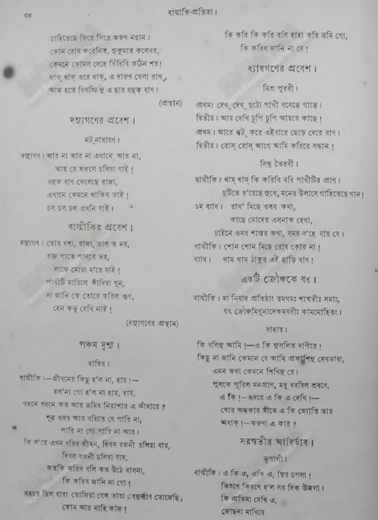 ৩৪
বাল্মীকি-প্রতিভা।
চাহিতেছে ফিরে ফিরে করুণ নয়ান।
কোন দোষ করেনিত, সুকুমার কলেবর,
কেমনে কোমল দেহে বিঁধিবি কঠিন শর!
থাক্ থাক্ ওরে থাক্, এ দারুণ খেলা রাখ্,
আজ হতে বিসর্জ্জিনু এ ছার ধনুক বাণ।
(প্রস্থান)
দস্যুগণের প্রবেশ।
নটনারায়ণ।
দস্যুগণ। আর না আর না এখানে আর না,
আয় রে সকলে চলিয়া যাই!
ধনুক বাণ ফেলেছে রাজা,
এখানে কেমনে থাকিব ভাই!
চল চল চল এখনি যাই।
বাল্মীকির প্রবেশ।
দস্যুগণ। তোর দশা, রাজা, ভাল ত নয়,
রক্ত পাতে পাস্‌রে ভয়,
লাজে মোরা ম'রে যাই!
পাখীটি মারিলে কাঁদিয়া খুন,
না জানি কে তোরে করিল গুণ,
হেন কভু দেখি নাই!
(দস্যুগণের প্রস্থান)
পঞ্চম দৃশ্য।
হাম্বির।
বাল্মীকি।—জীবনের কিছু হ'ল না, হায়!—
হল'না গো হ'ল না হায়, হায়,
গহনে গহনে কত আর ভ্রমিব নিরাশার এ আঁধারে?
শূন্য হৃদয় আর বহিতে যে পারি না,
পারি না গো পারি না আর।
কি ল'য়ে এখন ধরিব জীবন, দিবস রজনী চলিয়া যায়,
দিবস রজনী চলিয়া যায়,
কতকি করিব বলি কত উঠে বাসনা,
কি করিব জানি না গো!
সহচর ছিল যারা ত্যেজিয়া গেল তারা; ধনুর্ব্বাণ ত্যেজেছি।
কোন আর নাহি কাজ!
কি করি কি করি বলি হাহা করি ভ্রমি গো,
কি করিব জানি না যে!
ব্যাধগণের প্রবেশ।
মিশ্র পূরবী।
প্রথম। দেখ্, দেখ্, দুটো পাখী বসেছে গাছে।
দ্বিতীয়। আয় দেখি চুপি চুপি আয়রে কাছে!
প্রথম। আরে ঝট্ করে এইবারে ছেড়ে দেরে বাণ।
দ্বিতীয়। রোস্ রোস্ আগে আমি করিরে সন্ধান!
সিন্ধু ভৈরবী।
বাল্মীকি। থাম্ থাম্ কি করিবি বধি পাখীটির প্রাণ।
দুটিতে র'য়েছে সুখে, মনের উলাসে গাহিতেছে গান!
১ম ব্যাধ। রাখ' মিছে ওসব কথা,
কাছে মোদের এসনাক হেথা,
চাইনে ওসব শাস্তর কথা, সময় ব'হে যায় যে।
বাল্মীকি। শোন শোন মিছে রোষ কোর না!
ব্যাধ। থাম থাম ঠাকুর এই ছাড়ি বাণ!
একটি ক্রৌঞ্চকে বধ।
বাল্মীকি। মা নিষাদ প্রতিষ্ঠাং ত্বমগমঃ শাশ্বতীঃ সমাঃ,
যৎ ক্রৌঞ্চমিথুনাদেকমবধীঃ কামমোহিতং।
বাহার।
কি বলিনু আমি!—এ কি সুললিত বাণীরে!
কিছু না জানি কেমনে যে আমি প্রকাশিনু দেবভাষা,
এমন কথা কেমনে শিখিনু রে।
পুলকে পূরিল মনপ্রাণ, মধু বরষিল শ্রবণে,
এ কি!—হৃদয়ে এ কি এ দেখি!—
ঘোর অন্ধকার মাঝে এ কি জ্যোতি ভায়
অবাক্!—করুণা এ কার?
সরস্বতীর আবির্ভাব।
ভূপালী।
বাল্মীকি। এ কি এ, এ কি এ, স্থির চপলা!
কিরণে কিরণে হ'ল সব দিক উজলা।
কি প্রতিমা দেখি এ,
জোছনা মাখিয়ে